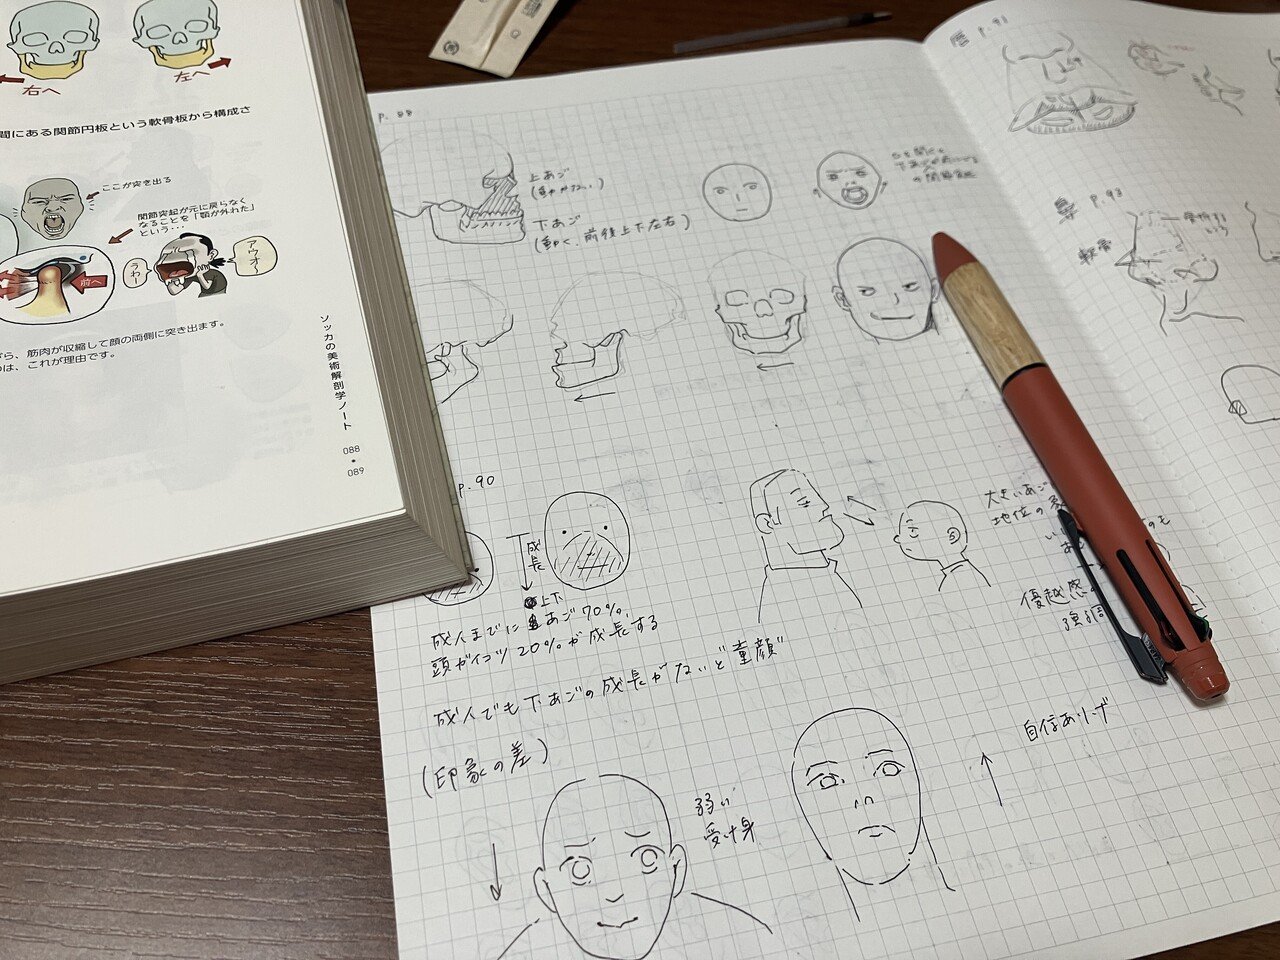 右へ
左へ
間にある関節円板という軟骨板から構成さ
ここが突き出る
関節突起が元に戻らなく
なることを「顎が外れた」
という…
前へ
うわー
アウオ〜
ら、筋肉が収縮して顔の両側に突き出ます。
は、これが理由です。
ソッカの美術解剖学ノート
088
089
p. 88
上あご
(動かない)
下あご
(動く、前後上下左右)
p.90
成長
上下
成人までにあご70%
頭ガイコツ20%が成長する
成人でも下あごの成長がないと童顔
(印象の差)
弱い
受け身
自信ありげ
大きいあご
地位の
優越感
強調
唇 p.91
鼻 p.93
軟骨